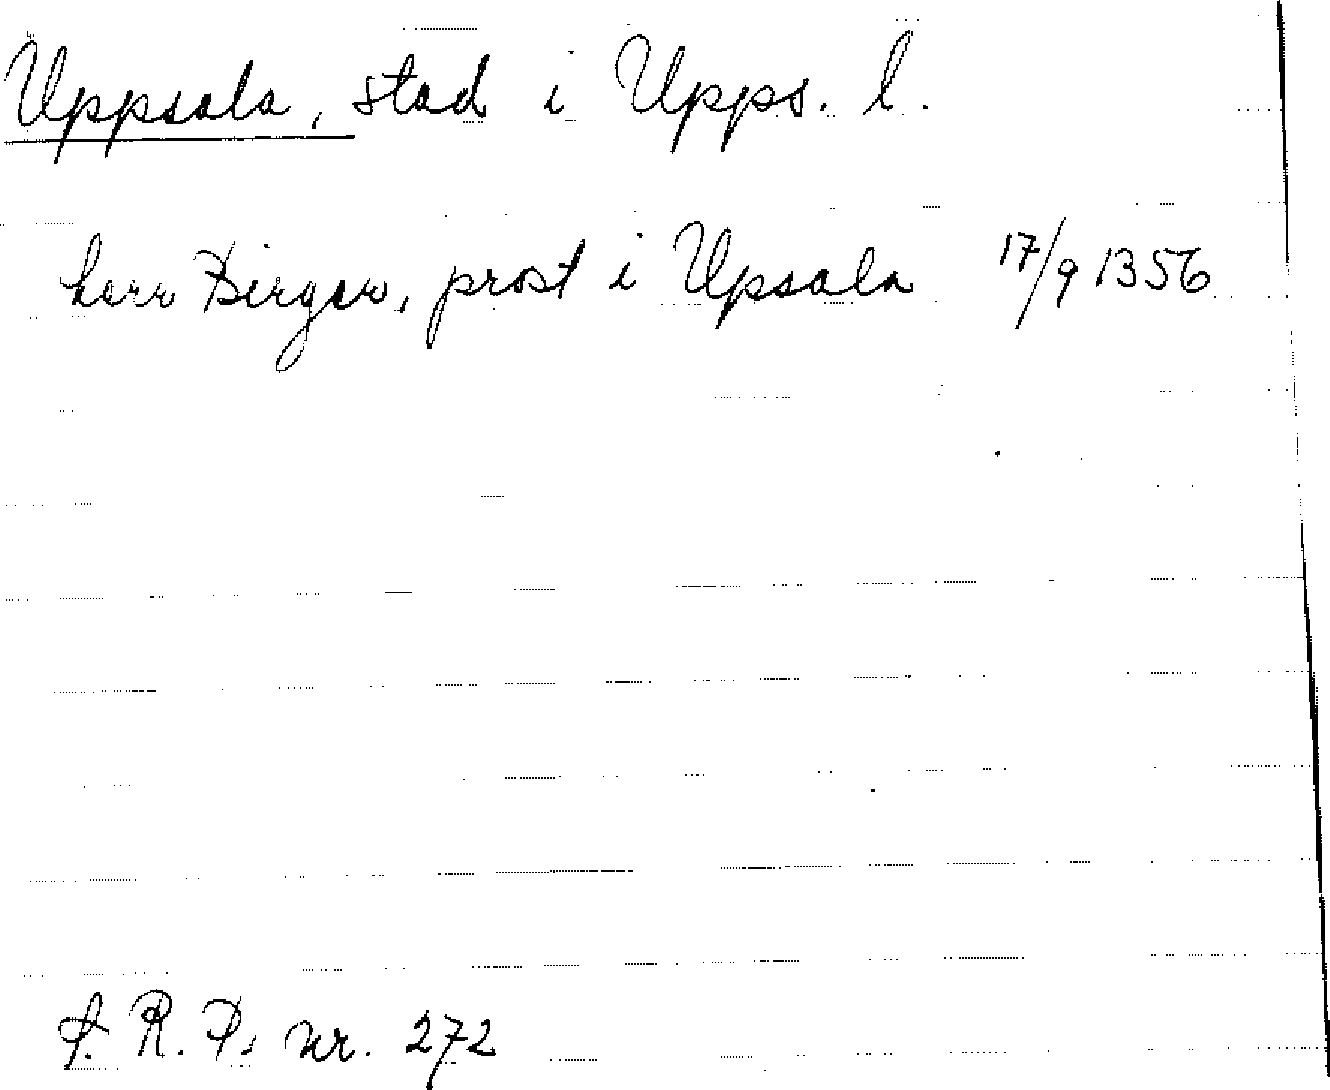 Uppsala, stad i Upps. l.
herr Birger, prost i Upsala 17/9 1356
S. R. P. nr. 272